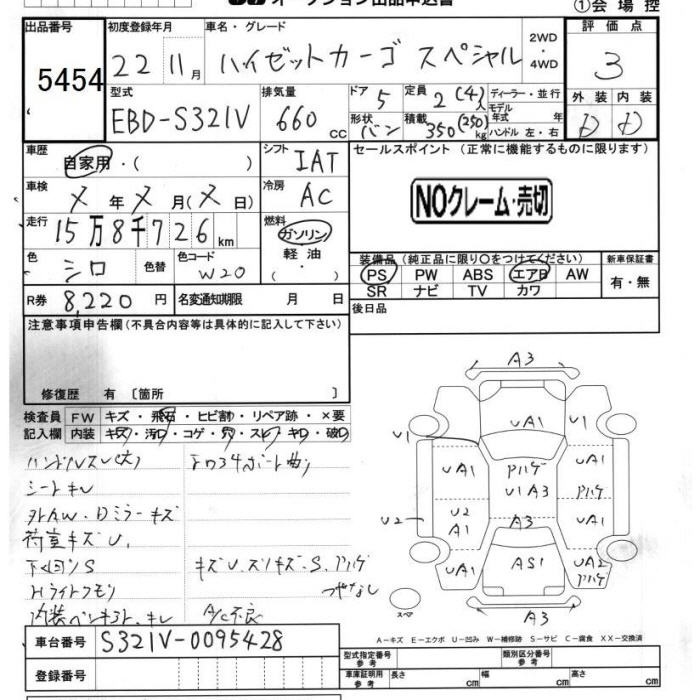 オークション出品申込書
①会場控
出品番号 初度登録年月 車名・グレード 2WD ・4WD 評価点
5454 22 11月 ハイゼットカーゴ スペシャル 3
型式 排気量 ドア 定員 ディーラー・並行 外装 内装
EBD-S321V 660cc 5 2(4)人 モデル年式 年 D D
形状 バン 積載 350(250)kg ハンドル 左・右
車歴 自家用・( ) シフト IAT セールスポイント (正常に機能するものに限ります)
車検 メ 年 メ 月(メ 日) 冷房 AC
NOクレーム・売切
走行 15万8千726km 燃料 ガソリン 軽油
色 シロ 色替 色コード W20
装備品 (純正品に限り○をつけてください) 新車保証書
PS PW ABS エアB AW 有・無
SR ナビ TV カワ
R券 8,220円 名変通知期限 月 日
後日品
注意事項申告欄(不具合内容等は具体的に記入して下さい)
修復歴 有〔箇所 〕
検査員 FW キズ・飛石・ヒビ割・リペア跡・×要
記入欄 内装 キズ・汚・コゲ・穴・スレ・キレ・破
ハンドルスレ(大)
シートキレ
外AW・Dミラーキズ
荷室キズU.
下廻りS キズU.スリキズ・S.アハゲ
Hライトクモリ ツヤなし
A/C不良
A3
UA1 U1
U1
UA1 アハゲ UA1
U1A3 アハゲ
U2 U2 A3 UA1
A1
UA1 AS1 UA2
アハゲ
スペア A3
A-キズ E-エクボ U-凹み W-補修跡 S-サビ C-腐食 XX-交換済
車台番号 S321V-0095428
登録番号
型式指定番号 参考 類別区分番号 参考
車庫証明用 参考 長さ cm 幅 cm 高さ cm